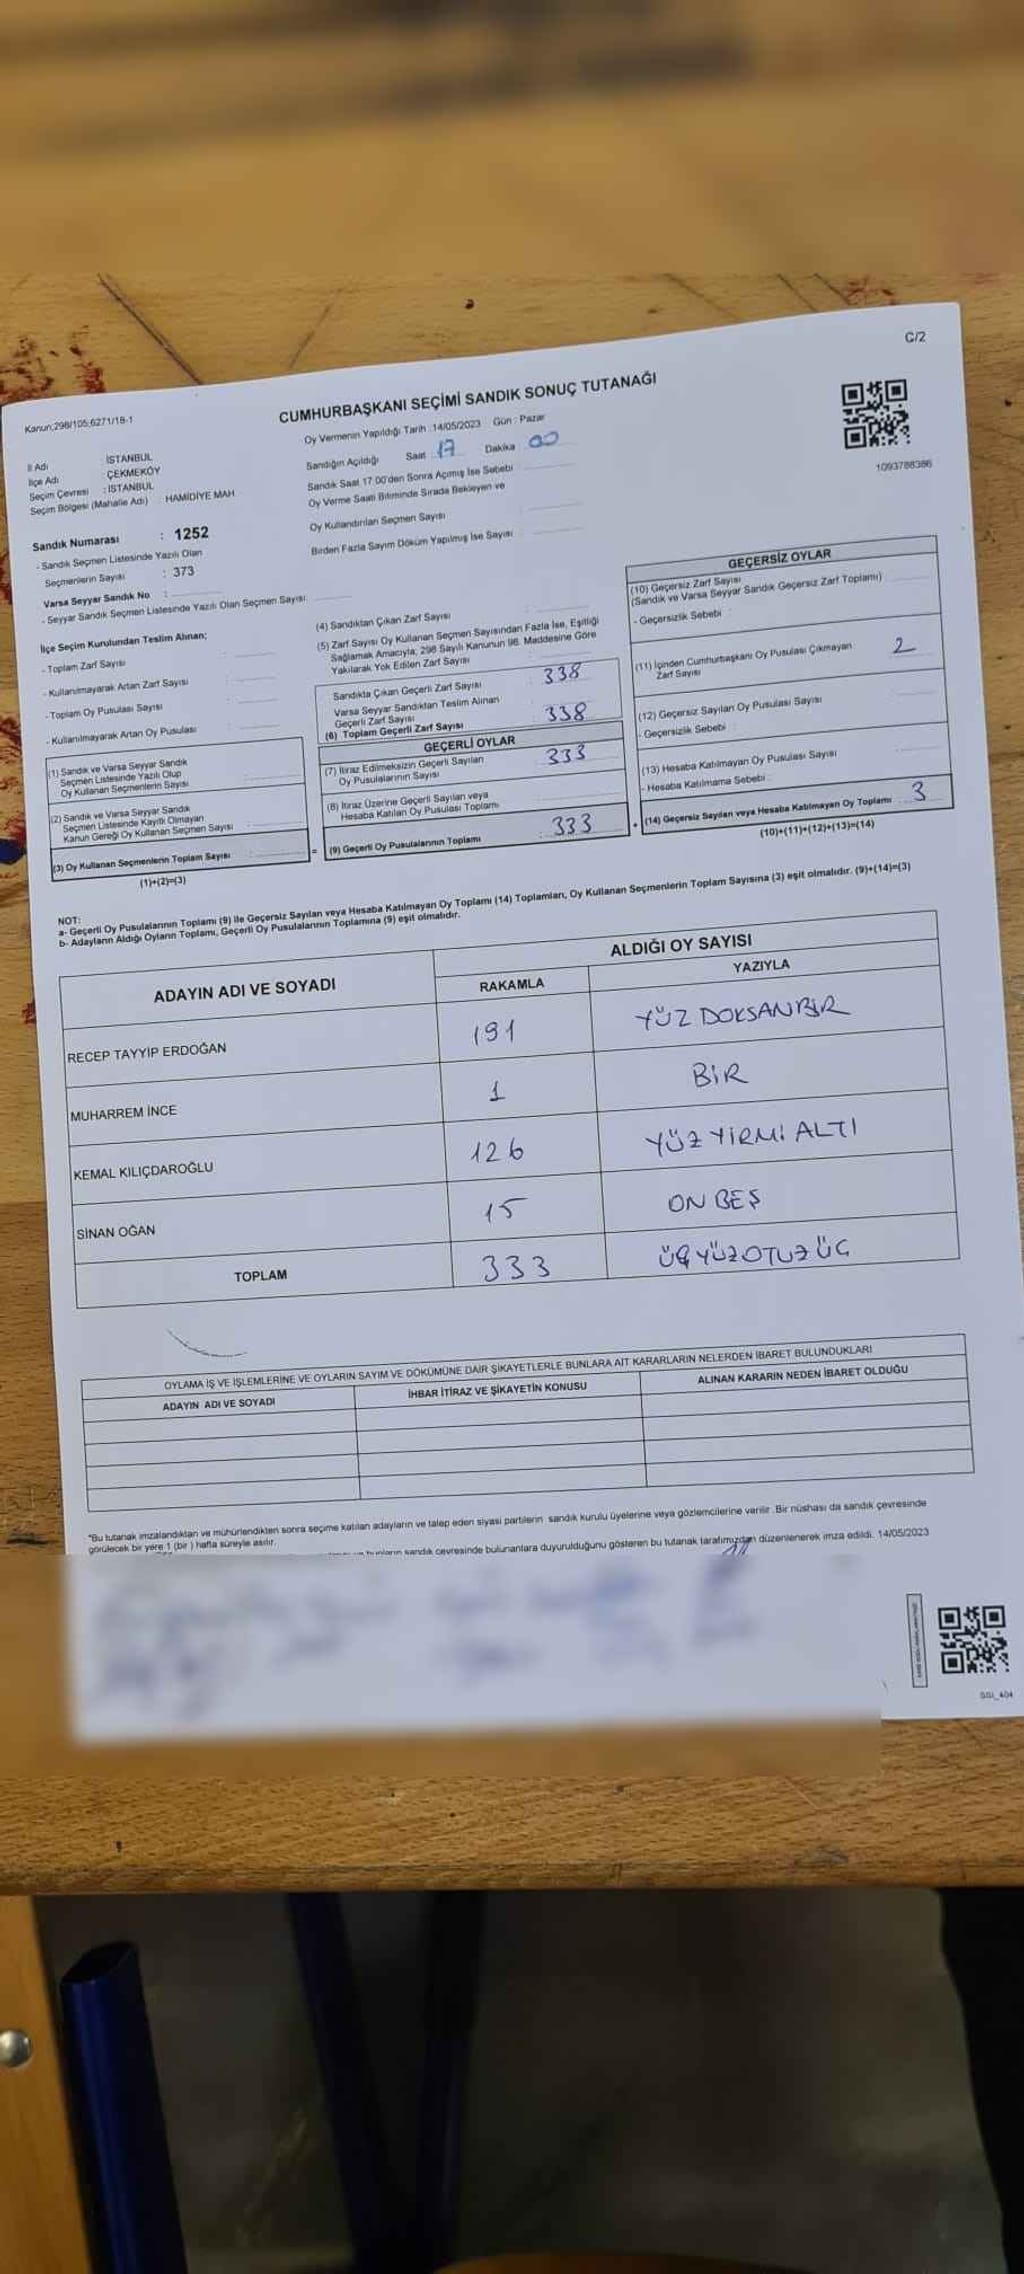 C/2
Kanun;298/105;6271/18-1
CUMHURBAŞKANI SEÇİMİ SANDIK SONUÇ TUTANAĞI
Oy Vermenin Yapıldığı Tarih :14/05/2023 Gün : Pazar
1093788386
İl Adı : İSTANBUL
İlçe Adı : ÇEKMEKÖY
Seçim Çevresi : İSTANBUL
Seçim Bölgesi (Mahalle Adı) : HAMİDİYE MAH
Sandığın Açıldığı Saat 17 Dakika 00
Sandık Saat 17.00'den Sonra Açımış İse Sebebi
Oy Verme Saati Bitiminde Sırada Bekleyen ve
Oy Kullandırılan Seçmen Sayısı
Birden Fazla Sayım Döküm Yapılmış İse Sayısı
Sandık Numarası : 1252
- Sandık Seçmen Listesinde Yazılı Olan
Seçmenlerin Sayısı : 373
Varsa Seyyar Sandık No :
- Seyyar Sandık Seçmen Listesinde Yazılı Olan Seçmen Sayısı
İlçe Seçim Kurulundan Teslim Alınan;
- Toplam Zarf Sayısı :
- Kullanılmayarak Artan Zarf Sayısı :
- Toplam Oy Pusulası Sayısı :
- Kullanılmayarak Artan Oy Pusulası :
(1) Sandık ve Varsa Seyyar Sandık
Seçmen Listesinde Yazılı Olup
Oy Kullanan Seçmenlerin Sayısı :
(2) Sandık ve Varsa Seyyar Sandık
Seçmen Listesinde Kayıtlı Olmayan
Kanun Gereği Oy Kullanan Seçmen Sayısı :
(3) Oy Kullanan Seçmenlerin Toplam Sayısı :
(1)+(2)=(3)
(4) Sandıktan Çıkan Zarf Sayısı :
(5) Zarf Sayısı Oy Kullanan Seçmen Sayısından Fazla İse, Eşitliği
Sağlamak Amacıyla, 298 Sayılı Kanunun 98. Maddesine Göre
Yakılarak Yok Edilen Zarf Sayısı :
Sandıkta Çıkan Geçerli Zarf Sayısı : 338
Varsa Seyyar Sandıktan Teslim Alınan
Geçerli Zarf Sayısı
(6) Toplam Geçerli Zarf Sayısı : 338
GEÇERLİ OYLAR
(7) İtiraz Edilmeksizin Geçerli Sayılan
Oy Pusulalarının Sayısı : 333
(8) İtiraz Üzerine Geçerli Sayılan veya
Hesaba Katılan Oy Pusulası Toplamı
= (9) Geçerli Oy Pusulalarının Toplamı : 333 +
GEÇERSİZ OYLAR
(10) Geçersiz Zarf Sayısı
(Sandık ve Varsa Seyyar Sandık Geçersiz Zarf Toplamı)
- Geçersizlik Sebebi :
(11) İçinden Cumhurbaşkanı Oy Pusulası Çıkmayan
Zarf Sayısı 2
(12) Geçersiz Sayılan Oy Pusulası Sayısı
- Geçersizlik Sebebi :
(13) Hesaba Katılmayan Oy Pusulası Sayısı
- Hesaba Katılmama Sebebi :
(14) Geçersiz Sayılan veya Hesaba Katılmayan Oy Toplamı 3
(10)+(11)+(12)+(13)=(14)
NOT:
a- Geçerli Oy Pusulalarının Toplamı (9) ile Geçersiz Sayılan veya Hesaba Katılmayan Oy Toplamı (14) Toplamları, Oy Kullanan Seçmenlerin Toplam Sayısına (3) eşit olmalıdır. (9)+(14)=(3)
b- Adayların Aldığı Oyların Toplamı, Geçerli Oy Pusulalarının Toplamına (9) eşit olmalıdır.
ADAYIN ADI VE SOYADI
ALDIĞI OY SAYISI
RAKAMLA YAZIYLA
RECEP TAYYİP ERDOĞAN 191 YÜZ DOKSANBİR
MUHARREM İNCE 1 BİR
KEMAL KILIÇDAROĞLU 126 YÜZ YİRMİ ALTI
SİNAN OĞAN 15 ON BEŞ
TOPLAM 333 ÜÇ YÜZ OTUZ ÜÇ
OYLAMA İŞ VE İŞLEMLERİNE VE OYLARIN SAYIM VE DÖKÜMÜNE DAİR ŞİKAYETLERLE BUNLARA AİT KARARLARIN NELERDEN İBARET BULUNDUKLARI
ADAYIN ADI VE SOYADI İHBAR İTİRAZ VE ŞİKAYETİN KONUSU ALINAN KARARIN NEDEN İBARET OLDUĞU
"Bu tutanak imzalandıktan ve mühürlendikten sonra seçime katılan adayların ve talep eden siyasi partilerin sandık kurulu üyelerine veya gözlemcilerine verilir. Bir nüshası da sandık çevresinde
görülecek bir yere 1 (bir) hafta süreyle asılır.
bunların sandık çevresinde bulunanlara duyurulduğunu gösteren bu tutanak tarafımızdan düzenlenerek imza edildi. 14/05/2023